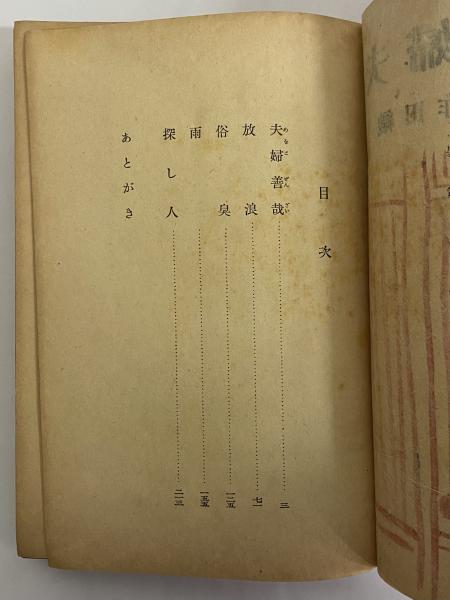 目次
夫婦善哉 三
めをとぜんざい
放浪 七一
俗臭 一二五
雨 一五五
探し人 二一三
あとがき